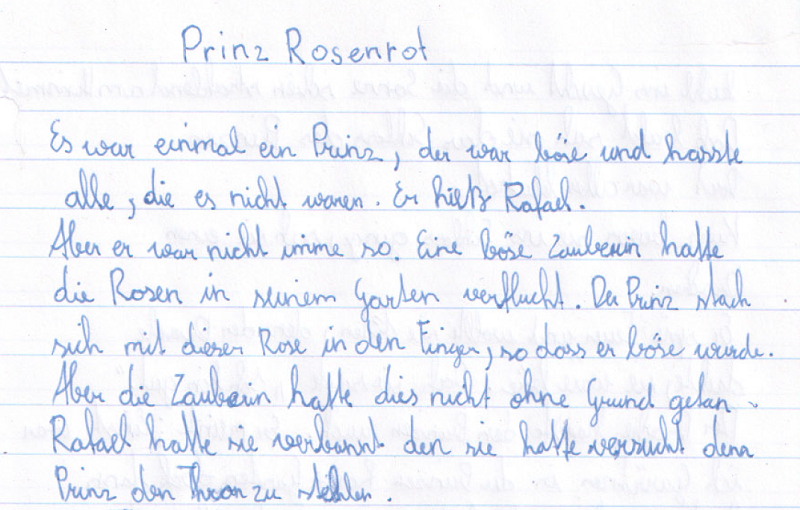 Prinz Rosenrot
Es war einmal ein Prinz, der war böse und hasste
alle, die es nicht waren. Er hieß Rafael.
Aber er war nicht imme so. Eine böse Zauberin hatte
die Rosen in seinem Garten verflucht. Der Prinz stach
sich mit dieser Rose in den Finger, so dass er böse wurde.
Aber die Zauberin hatte dies nicht ohne Grund getan.
Rafael hatte sie verbannt den sie hatte versucht denn
Prinz den Thron zu stehlen.